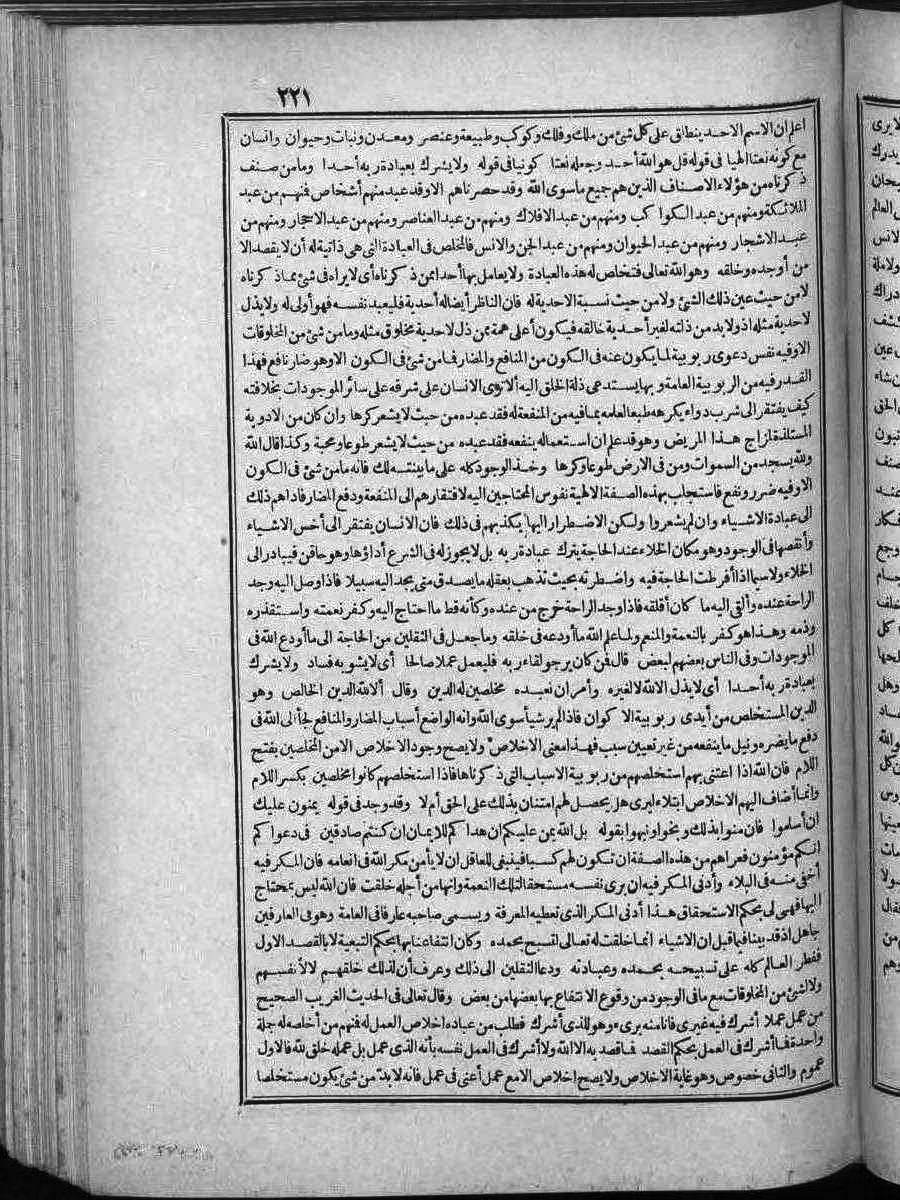 ٢٢١
اعلم ان الاسم الاحد ينطلق على كل شئ من ملك وفلك وكوكب وطبيعة وعنصر ومعدن ونبات وحيوان وانسان
مع كونه نعتا الهيا فى قوله قل هو الله أحد وجعله نعتا كونيا فى قوله ولا يشرك بعبادة ربه أحدا ومامن صنف
ذكرناه من هؤلاء الاصناف الذين هم جميع ماسوى الله وقد حصرناهم الاوقد عبد منهم أشخاص فنهم من عبد
الملائكة ومنهم من عبد الكواكب ومنهم من عبد الافلاك ومنهم من عبد العناصر ومنهم من عبد الاحجار ومنهم من
عبد الاشجار ومنهم من عبد الحيوان ومنهم من عبد الجن والانس فالمخلص فى العبادة التى هى ذاتية له أن لا يقصد الا
من أوجده وخلقه وهو الله تعالى فتخلص له هذه العبادة ولا يعامل بها أحدا ممن ذكرناه أى لا يراه فى شئ مماذكرناه
لامن حيث عين ذلك الشئ ولا من حيث نسبة الاحدية له فان الناظر أيضا له أحدية فليعبد نفسه فهو أولى له ولا يذل
لاحدية مثله اذ ولابد من ذلته لغير أحدية خالقه فيكون أعلى همة ممن ذل لاحدية مخلوق مثله ومامن شئ من المخلوقات
الاوفيه نفس دعوى ربوبية لما يكون عنه فى الكون من المنافع والمضار فمامن شئ فى الكون الاوهو ضار نافع فهذا
القدر فيه من الربوبية العامة وبها يستدعى ذلة الخلق اليه ألاترى الانسان على شرفه على سائر الموجودات بخلافته
كيف يفتقر الى شرب دواء يكرهه طبعا لعلمه بمافيه من المنفعة له فقد عبده من حيث لا يشعر كرها وان كان من الادوية
المستلذة لمزاج هذا المريض وهو قد علم ان استعماله ينفعه فقد عبده من حيث لا يشعر طوعا ومحبة وكذا قال الله
ولله يسجد من السموات ومن فى الارض طوعا وكرها وخذ الوجود كله على مابينته لك فانه مامن شئ فى الكون
الاوفيه ضرر ونفع فاستجلب بهذه الصفة الالهية نفوس المحتاجين اليه لافتقارهم الى المنفعة ودفع المضار فاداهم ذلك
الى عبادة الاشياء وان لم يشعروا ولكن الاضطرار اليها يكذبهم فى ذلك فان الانسان يفتقر الى أخس الاشياء
وأنقصها فى الوجود وهو مكان الخلاء عند الحاجة يترك عبادة ربه بل لا يجوز له فى الشرع أداؤها وهو حاقن فيبادر الى
الخلاء ولاسيما اذا أفرطت الحاجة فيه واضطرته بحيث تذهب بعقله مايصدق متى يجد اليه سبيلا فاذا وصل اليه وجد
الراحة عنده وألقى اليه ما كان أقلقه فاذا وجد الراحة خرج من عنده وكأنه قط مااحتاج اليه وكفر نعمته واستقذره
وذمه وهذا هو كفر بالنعمة والمنعم ولما علم الله ماأودعه فى خلقه وماجعل فى الثقلين من الحاجة الى ماأودع الله فى
الموجودات وفى الناس بعضهم لبعض قال فمن كان يرجو لقاء ربه فليعمل عملا صالحا أى لا يشوبه فساد ولا يشرك
بعبادة ربه أحدا أى لا يذل الالله لا لغيره وأمر ان نعبده مخلصين له الدين وقال ألالله الدين الخالص وهو
الدين المستخلص من أيدى ربوبية الاكوان فاذا لم ير شيأ سوى الله وانه الواضع أسباب المضار والمنافع لجأ الى الله فى
دفع مايضره ونيل ماينفعه من غير تعيين سبب فهذا معنى الاخلاص ولا يصح وجود الاخلاص الا من المخلصين بفتح
اللام فان الله اذا اعتنى بهم استخلصهم من ربوبية الاسباب التى ذكرناها فاذا استخلصهم كانوا مخلصين بكسر اللام
وانما أضاف اليهم الاخلاص ابتلاء ليرى هل يحصل لهم امتنان بذلك على الحق أم لا وقد وجد فى قوله يمنون عليك
ان أسلموا فان منوا بذلك وبخوا ونبهوا بقوله بل الله يمن عليكم ان هداكم للايمان ان كنتم صادقين فى دعواكم
انكم مؤمنون فعراهم من هذه الصفة ان تكون لهم كسبا فينبغى للعاقل ان لا يأمن مكر الله فى انعامه فان المكر فيه
أخفى منه فى البلاء وأدنى المكر فيه ان يرى نفسه مستحقا لتلك النعمة وانها من أجله خلقت فان الله ليس بمحتاج
اليها فهى لى بحكم الاستحقاق هذا أدنى المكر الذى تعطيه المعرفة ويسمى صاحبه عارفا فى العامة وهو فى العارفين
جاهل اذ قد بينا فيما قبل ان الاشياء انما خلقت له تعالى لتسبح بحمده وكان انتفاعنا بها بحكم التبعية لا بالقصد الاول
ففطر العالم كله على تسبيحه بحمده وعبادته ودعا الثقلين الى ذلك وعرف أن لذلك خلقهم لا لأنفسهم
ولا لشئ من المخلوقات مع مافى الوجود من وقوع الانتفاع بها بعضها من بعض وقال تعالى فى الحديث الغريب الصحيح
من عمل عملا أشرك فيه غيرى فانا منه برىء وهو للذى أشرك فطلب من عباده اخلاص العمل له فنهم من أخلصه له جملة
واحدة فماأشرك فى العمل بحكم القصد فماقصد به الاالله ولا أشرك فى العمل نفسه بأنه الذى عمل بل عمله خلق لله فالاول
عموم والثانى خصوص وهو غاية الاخلاص ولا يصح اخلاص الامع عمل أعنى فى عمل فانه لابد من شئ يكون مستخلصا